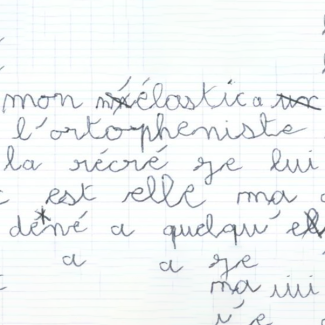 mon élastic a
l'ortopheniste
la récré ge lui
est elle ma
déné a quelqu'e
a a ge
ma